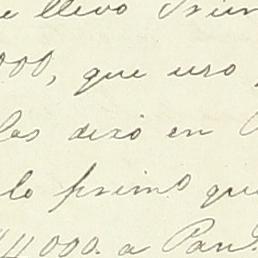 e llevo
000, que uso
las dexó en
lo primo que
4000. a Pan